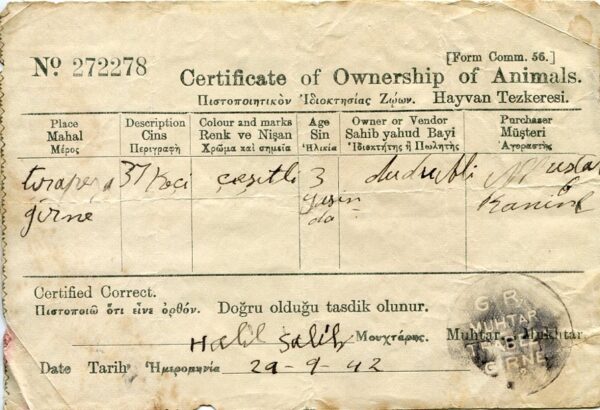 Nº 272278
[Form Comm. 56.]
Certificate of Ownership of Animals.
Πιστοποιητικὸν Ἰδιοκτησίας Ζῴων. Hayvan Tezkeresi.
Place Description Colour and marks Age Owner or Vendor Purchaser
Mahal Cins Renk ve Nişan Sin Sahib yahud Bayi Müşteri
Μέρος Περιγραφὴ Χρῶμα καὶ σημεῖα Ἡλικία Ἰδιοκτήτης ἢ Πωλητὴς Ἀγοραστής
37 Keçi çeşitli 3
girne yaşın
da
Certified Correct.
Πιστοποιῶ ὅτι εἶνε ὀρθόν. Doğru olduğu tasdik olunur.
Halil Salih Μουχτάρης. Muhtar. Mukhtar
Date Tarih Ἡμερομηνία 29-9-42
G. R.
MUHTAR
GİRNE